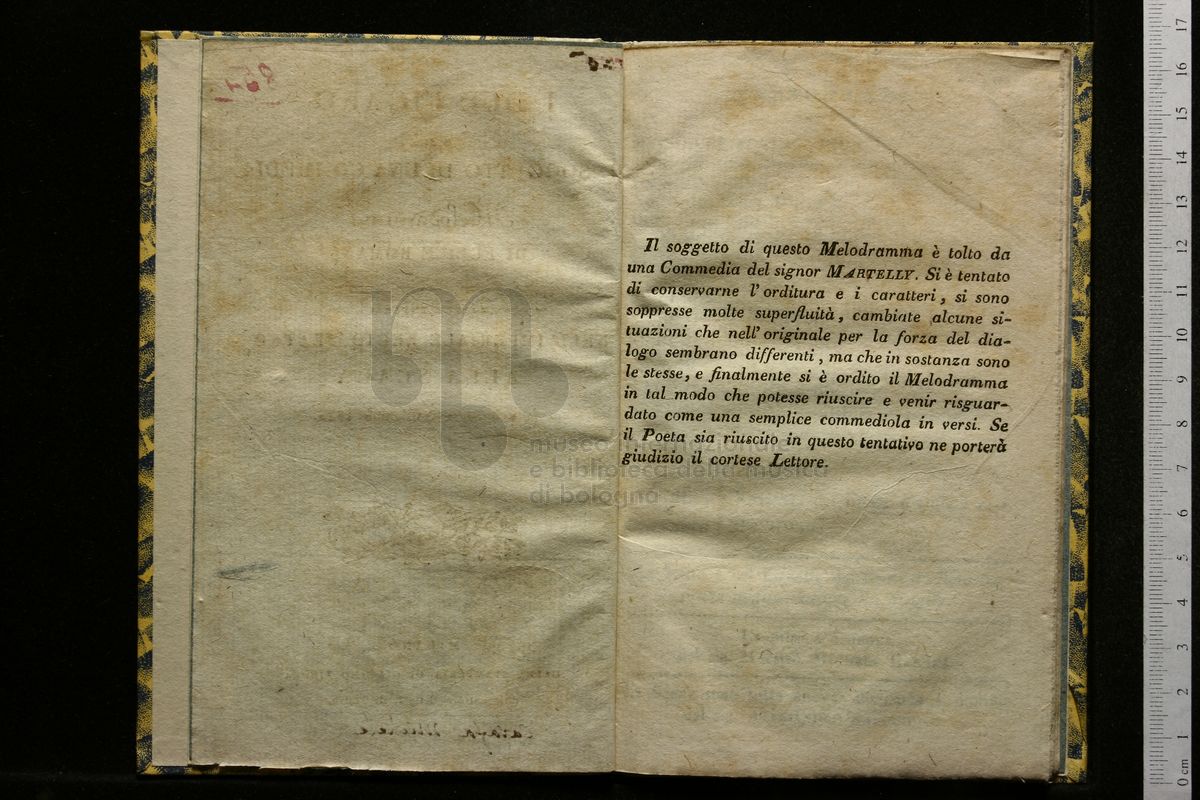 Il soggetto di questo Melodramma è tolto da
una Commedia del signor MARTELLY. Si è tentato
di conservarne l'orditura e i caratteri, si sono
soppresse molte superfluità, cambiate alcune si-
tuazioni che nell'originale per la forza del dia-
logo sembrano differenti, ma che in sostanza sono
le stesse, e finalmente si è ordito il Melodramma
in tal modo che potesse riuscire e venir risguar-
dato come una semplice commediola in versi. Se
il Poeta sia riuscito in questo tentativo ne porterà
giudizio il cortese Lettore.
museo
e biblioteca della musica
di bologna
0 cm 1 2 3 4 5 6 7 8 9 10 11 12 13 14 15 16 17